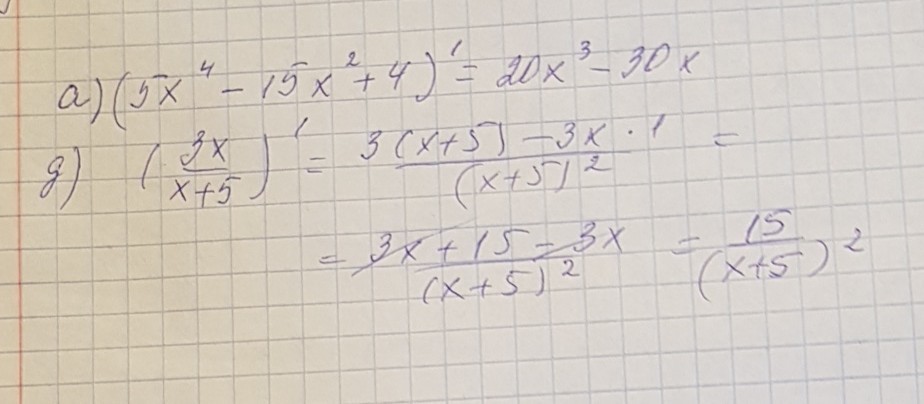 а) (5x⁴ - 15x² + 4)' = 20x³ - 30x
д) (3x/(x+5))' = (3(x+5) - 3x · 1)/(x+5)² =
= (3x + 15 - 3x)/(x+5)² = 15/(x+5)²